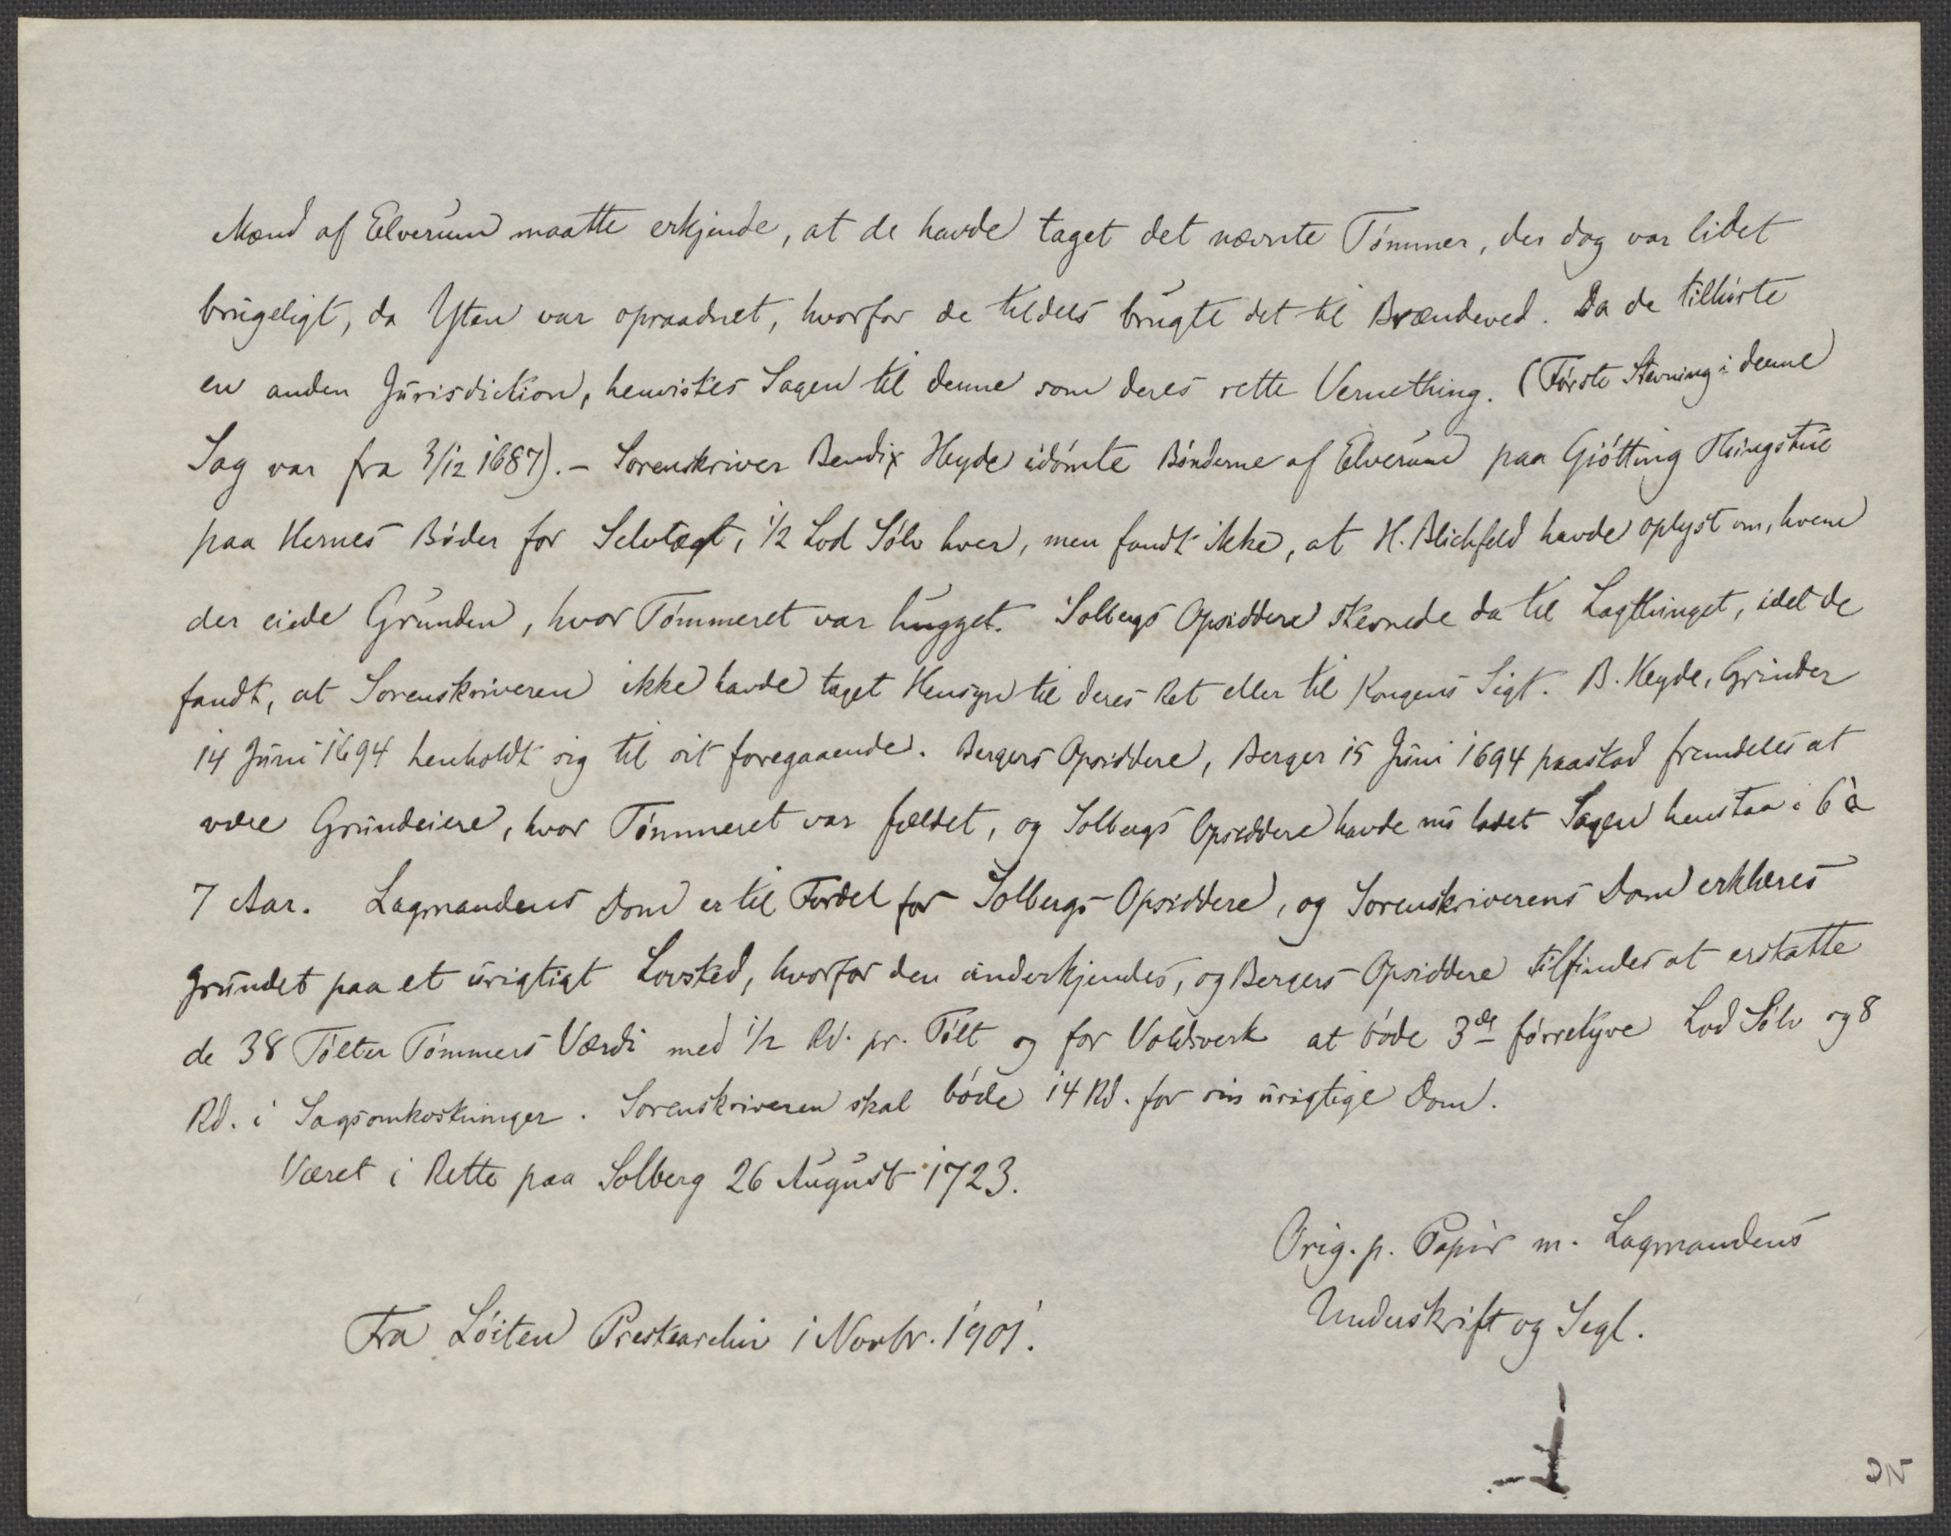 Mænd af Elverum maatte erkjende, at de havde taget det nævnte Tømmer, der dog var lidet
brugeligt, da Yten var opraadnet, hvorfor de tildels brugte det til Brændeved. Da de tilhørte
en anden Jurisdiction, henvistes Sagen til denne som deres rette Vernething. (Første Stevning i denne
Sag var fra 3/12 1687). - Sorenskriver Bendix Heyde idømte Bønderne af Elverum paa Gjøtting Thingstue
paa Hernes Bøder for Selvtægt, 1/2 Lod Sølv hver, men fandt ikke, at H. Blichfeld havde oplyst om, hvem
der eiede Grunden, hvor Tømmeret var hugget. Solbergs Opsiddere stevnede da til Lagthinget, idet de
fandt, at Sorenskriveren ikke havde taget Hensyn til deres Ret eller til Kongens Sigt. B. Heyde, Grinder
14 Juni 1694 henholdt sig til sit foregaaende. Bergers Opsiddere, Berger 15 Juni 1694 paastod fremdeles at
være Grundeiere, hvor Tømmeret var fældet, og Solbergs Opsiddere havde nu ladet Sagen henstaa i 6 à
7 Aar. Lagmandens Dom er til Fordel for Solbergs Opsiddere, og Sorenskriverens Dom erklæres
grundet paa et urigtigt Lovsted, hvorfor den underkjendes, og Bergers Opsiddere tilfindes at erstatte
de 38 Tølter Tømmers Værdi med 1/2 Rd. pr. Tølt og for Voldsverk at bøde 3de førretyve Lod Sølv og 8
Rd. i Sagsomkostninger. Sorenskriveren skal bøde 14 Rd. for sin urigtige Dom.
Været i Rette paa Solberg 26 August 1723.
Orig. p. Papir m. Lagmandens
Underskrift og Segl.
Fra Løiten Prestearchiv i Novbr. 1901.
DN